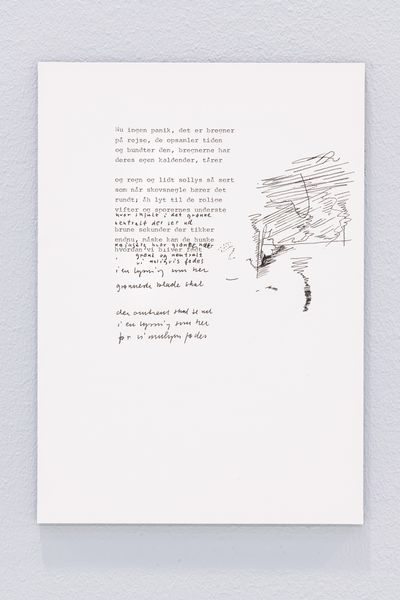 Nu ingen panik, det er bregner
på rejse, de opsamler tiden
og bundter den, bregnerne har
deres egen kalender, tårer
og regn og lidt sollys så sort
som når skovsnegle hører det
rundt; åh lyt til de rolige
vifter og sporernes underste
hvor smukt i det grønne
neutralt der ser ud
brune sekunder der tikker
endnu, måske kan de huske
hvordan vi bliver født
grønt og neutralt
vi muligvis fødes
i en lysning som her
skal
der omtrent skal se ud
i en lysning som her
før vi muligvis fødes